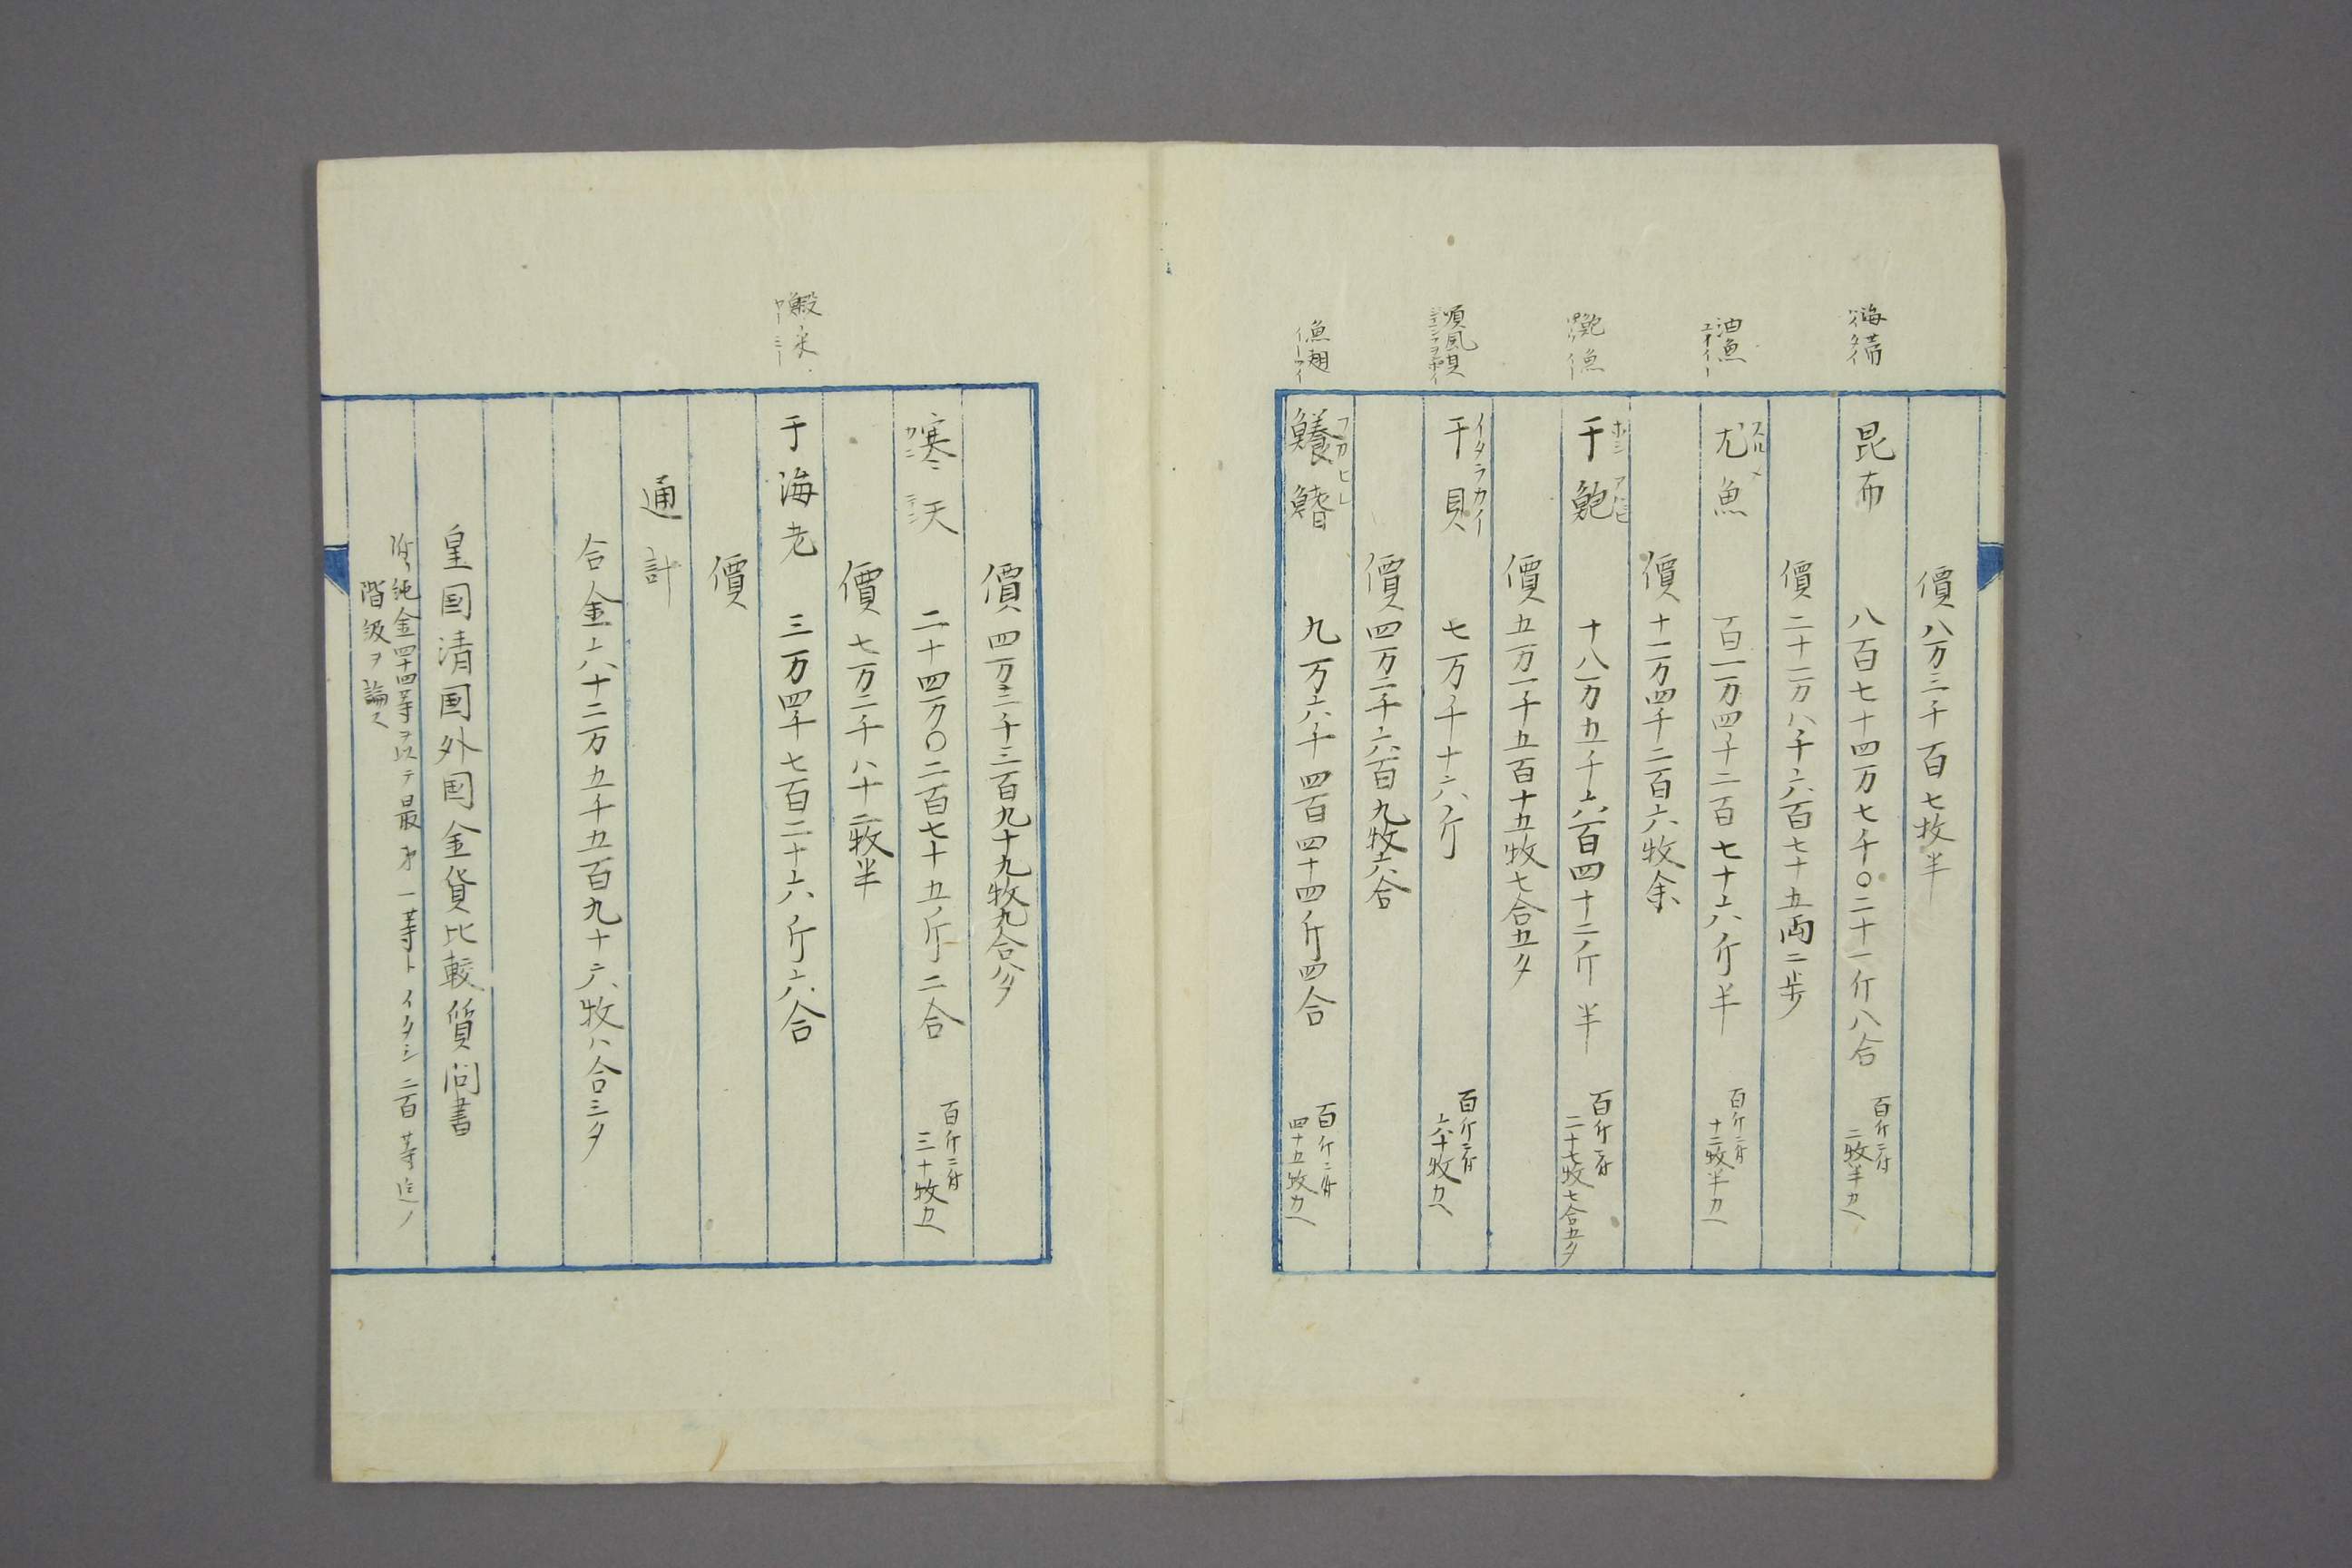 價八万三千百七枚半
海帯
ハイタイ
昆布 八百七十四万七千〇二十一斤八合 百斤ニ付
二牧半カヘ
價二十二万八千六百七十五両二歩
油魚
ユイイー
スルメ
尤魚 百一万四千二百七十六斤半 百斤ニ付
十二牧半カヘ
價十二万四千二百六牧余
魚
ホシアハヒ
干鮑 十八万五千六百四十二斤半 百斤ニ付
二十七牧七合五夕
價五万一千五百十五牧七合五夕
順風貝
イタラカイ
干貝 七万千十六斤 百斤ニ付
六十牧カヘ
價四万二千六百九牧六合
魚翅
イーツイ
フカヒレ
鱶鰭 九万六千四百四十四斤四合 百斤ニ付
四十五牧カヘ
價四万三千三百九十九牧九合八夕
カンテン
寒天 二十四万〇二百七十五斤二合 百斤ニ付
三十牧カヘ
價七万二千八十二牧半
鰕米
干海老 三万四千七百二十六斤六合
價
通計
合金六十二万五千五百九十六牧八合三夕
皇国清国外国金貨比較質問書
但純金四十四等ヲ以テ最才一等トイタシ二百等迄ノ
階級ヲ論ス